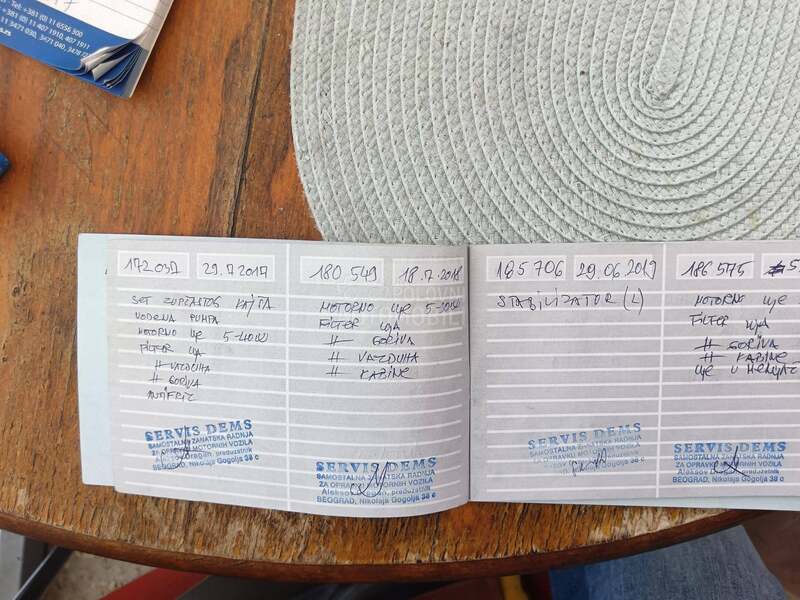 Tel: +381 (0) 11 6556 500
+381 (0) 11 407 1910, 407 1911
11 3471 030, 3471 040, 3478
29.7.2017
SET ZUPČASTOG KAIŠA
VODENA PUMPA
MOTORNO ULJE 5-40
FILTER ULJA
VAZDUHA
GORIVA
ANTIFRIZ
SERVIS DEMS
SAMOSTALNA ZANATSKA RADNJA
ZA OPRAVKU MOTORNIH VOZILA
preduzetnik
BEOGRAD, Nikolaja Gogolja 38 c
180.549 18.7.2018
MOTORNO ULJE
FILTER ULJA
-||- GORIVA
-||- VAZDUHA
-||- KABINE
SERVIS DEMS
SAMOSTALNA ZANATSKA RADNJA
ZA OPRAVKU MOTORNIH VOZILA
Aleksov Dragan, preduzetnik
BEOGRAD, Nikolaja Gogolja 38 c
185 706 29.06.2019
STABILIZATOR (L)
SERVIS DEMS
SAMOSTALNA ZANATSKA RADNJA
ZA OPRAVKU MOTORNIH VOZILA
preduzetnik
BEOGRAD, Nikolaja Gogolja 38 c
186 575
MOTORNO ULJE
FILTER ULJA
-||- GORIVA
-||- KABINE
ULJE U MENJAČ
SERVIS DEMS
SAMOSTALNA ZANATSKA RADNJA
ZA OPRAVKU MOTORNIH VOZILA
Aleksov Dragan, preduzetnik
BEOGRAD, Nikolaja Gogolja 38 c